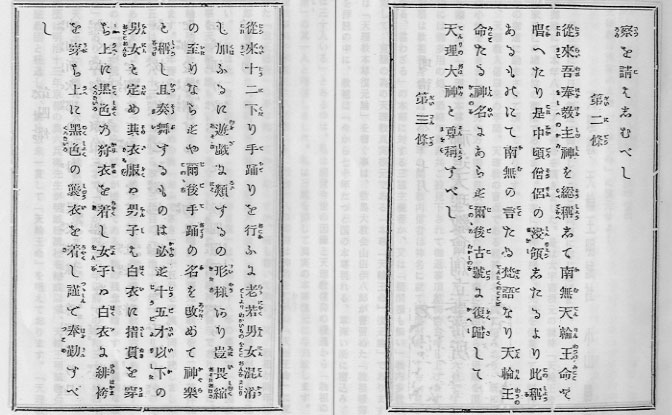 察を請はしむべし
第二條
從來吾奉教主神を總稱して南無天輪王命を
唱へたり是中頃僧侶の浸領したるより此稱
あるものにて南無の言たる梵語なり天輪王
命たる神名にあらず爾後古號に復歸して
天理大神と尊稱すべし
第三條
從來十二下り手踊りを行ふに老若男女混淆
し加ふるに遊戯に類するの形樣あり豈畏縮
の至りならずや爾後手踊の名を改めて神樂
と稱し且奏舞するものは必ず十五才以下の
男女を定め其衣服は男子は白衣に指貫を穿
ち上に黑色の狩衣を着し女子は白衣に緋袴
を穿ち上に黑色の襲衣を着し謹て奉勤すべ
し